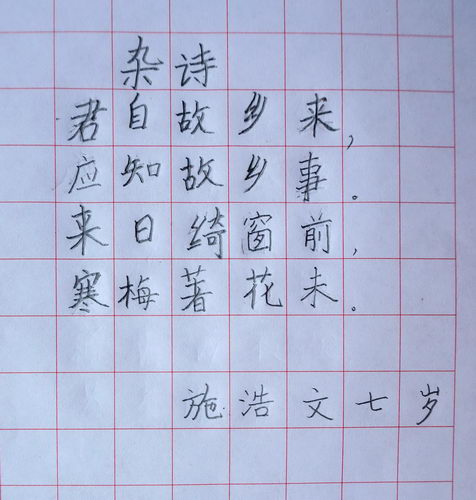 杂诗
君自故乡来,
应知故乡事。
来日绮窗前,
寒梅著花未。
施浩文七岁